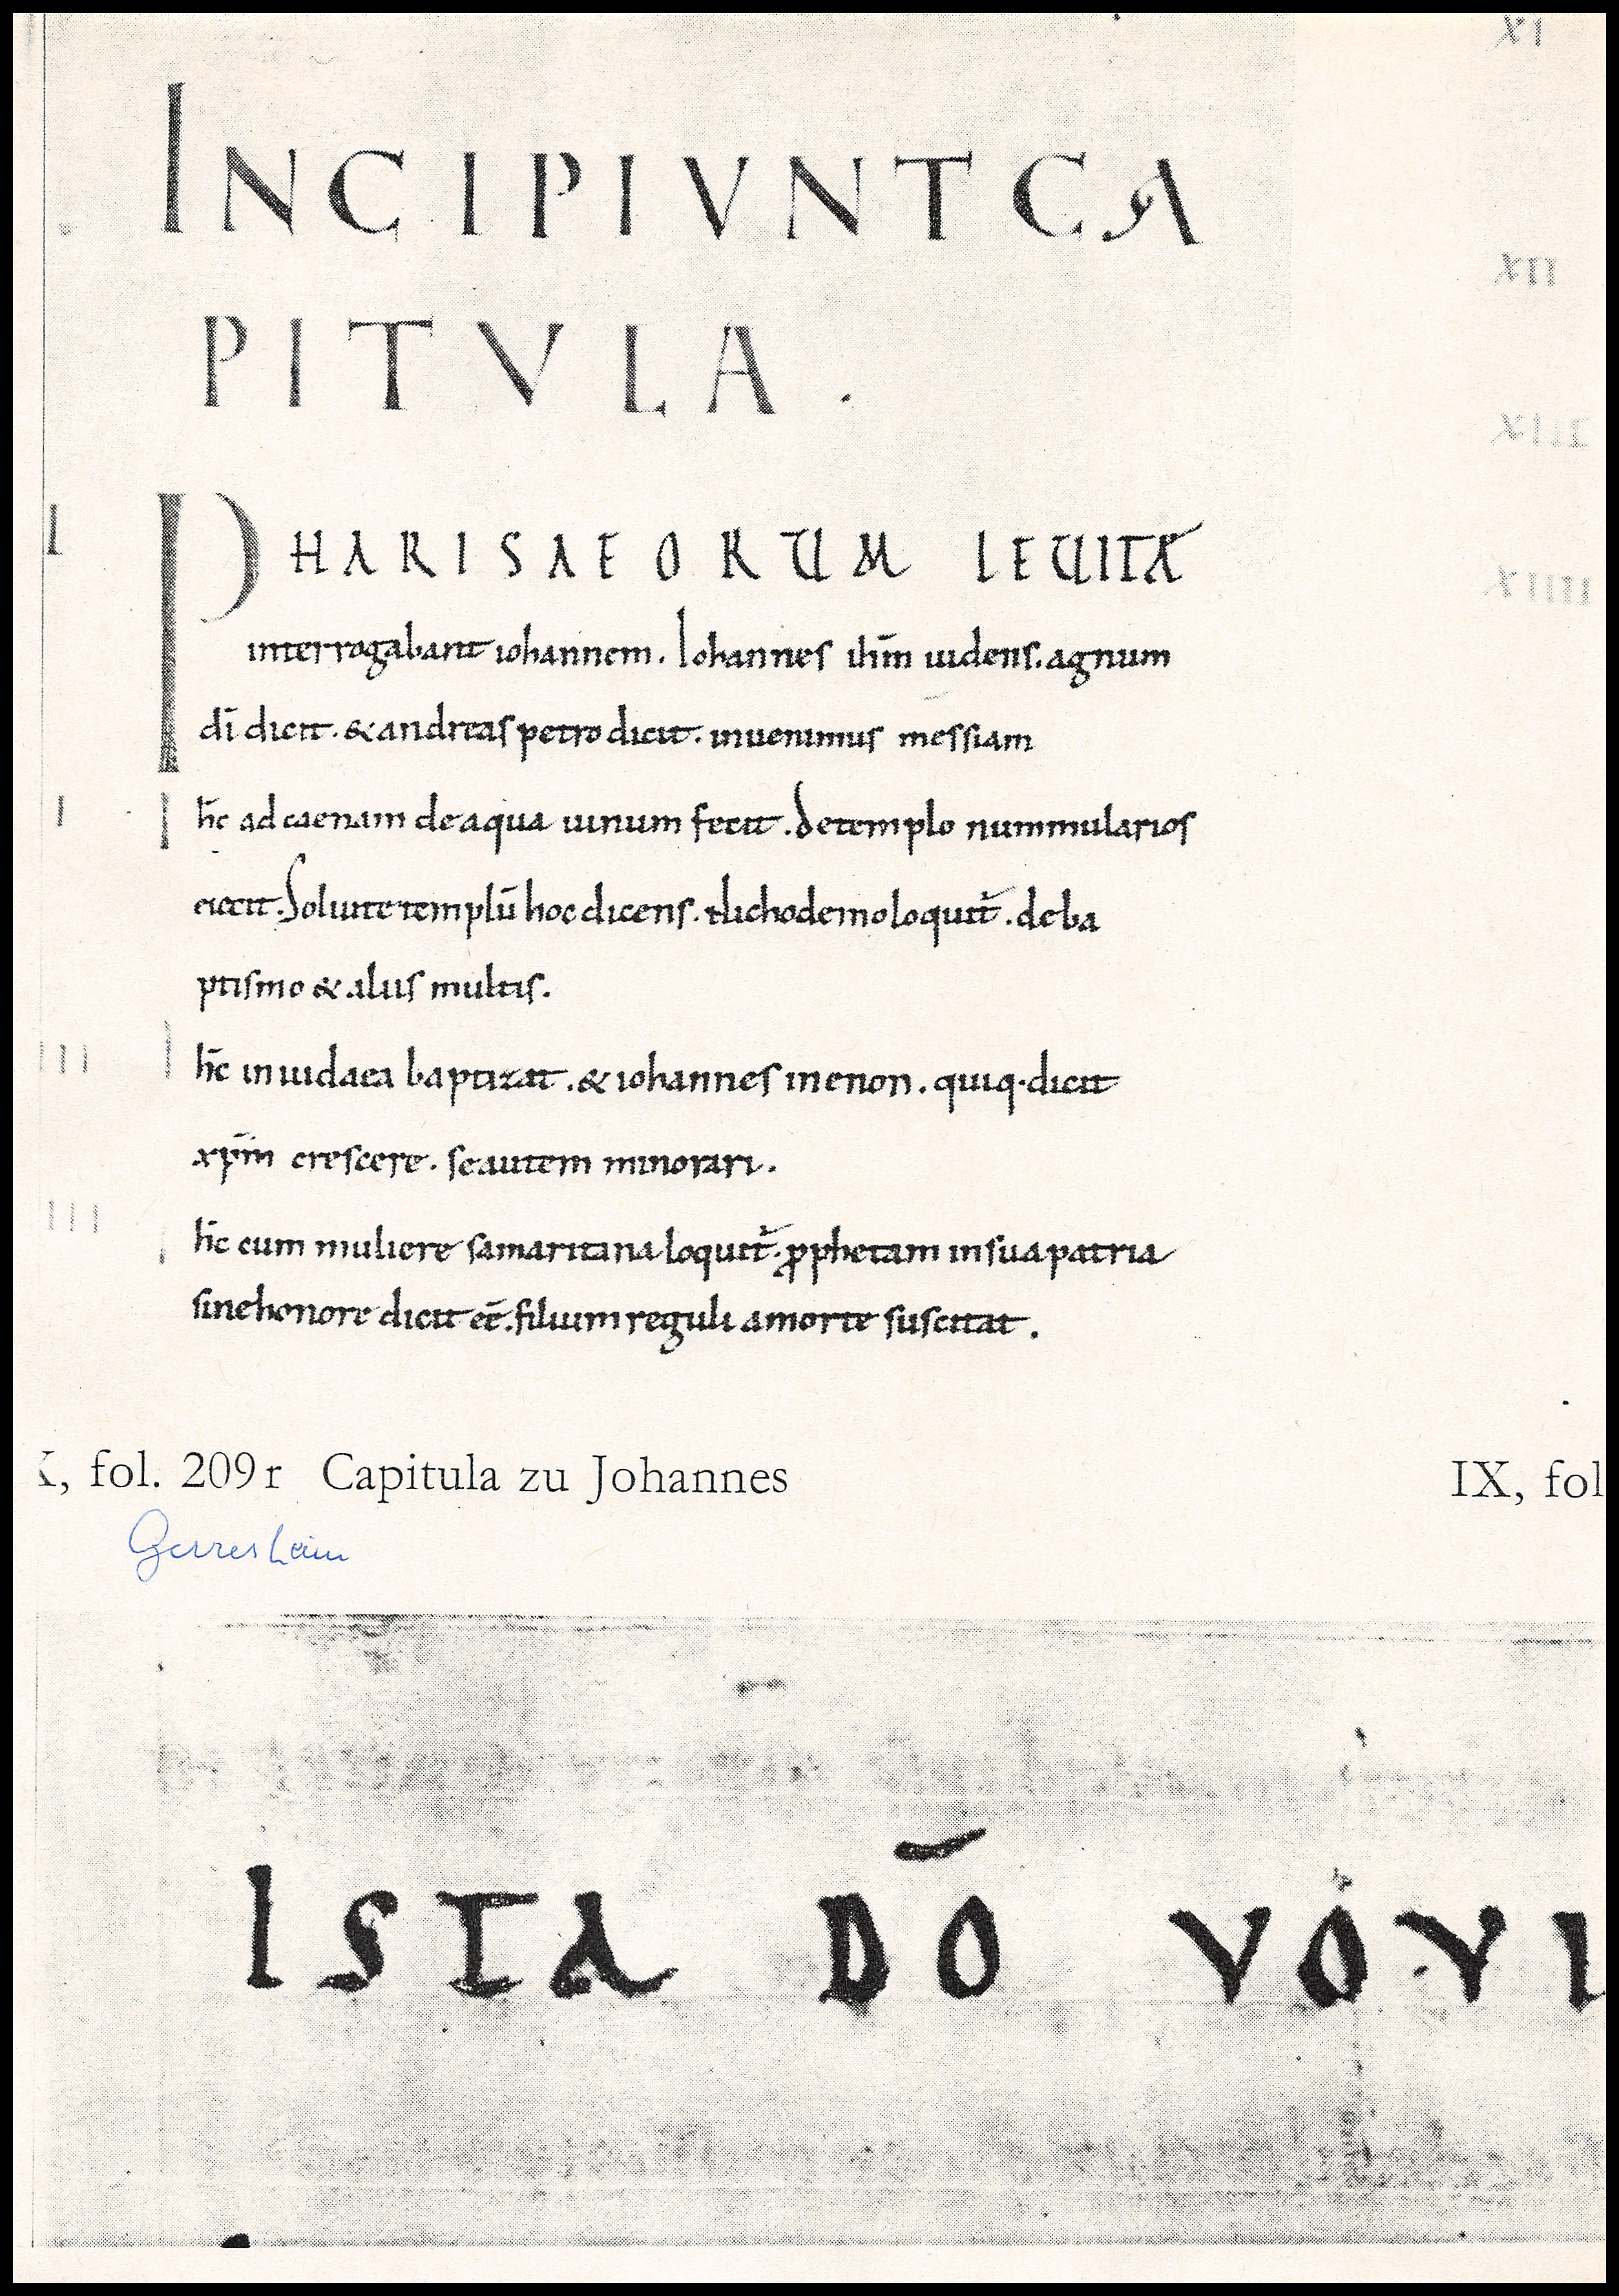 XI
INCIPIVNT CA
XII
PITVLA .
XIII
I PHARISAEORUM LEUITA
XIIII
interrogabant iohannem. Iohannes ihm̄ uidens. agnum
dī dicit. & andreas petro dicit. inuenimus messiam
I I hīc ad caenam de aqua uinum fecit. De templo nummularios
eiecit. Soluite templū hoc dicens. Nichodemo loquit̄. de ba
ptismo & aliis multis.
III hīc in iudaea baptizat. & iohannes in enon. quiq· dicit
xp̄m crescere. se autem minorari.
III hīc cum muliere samaritana loquit̄. ꝓphetam in sua patria
sine honore dicit eē. filium reguli a morte suscitat.
X, fol. 209r Capitula zu Johannes
IX, fol
Gerresheim
ISTA DŌ VOVI